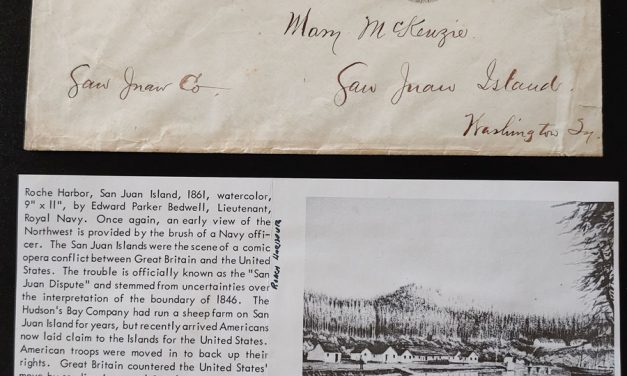 Mary McKenzie.
San Juan Co
San Juan Island.
Washington Ty.
Roche Harbor, San Juan Island, 1861, watercolor,
9" x 11", by Edward Parker Bedwell, Lieutenant,
Royal Navy. Once again, an early view of the
Northwest is provided by the brush of a Navy offi-
cer. The San Juan Islands were the scene of a comic
opera conflict between Great Britain and the United
States. The trouble is officially known as the "San
Juan Dispute" and stemmed from uncertainties over
the interpretation of the boundary of 1846. The
Hudson's Bay Company had run a sheep farm on
San Juan Island for years, but recently arrived Americans
now laid claim to the Islands for the United States.
American troops were moved in to back up their
rights. Great Britain countered the United States'